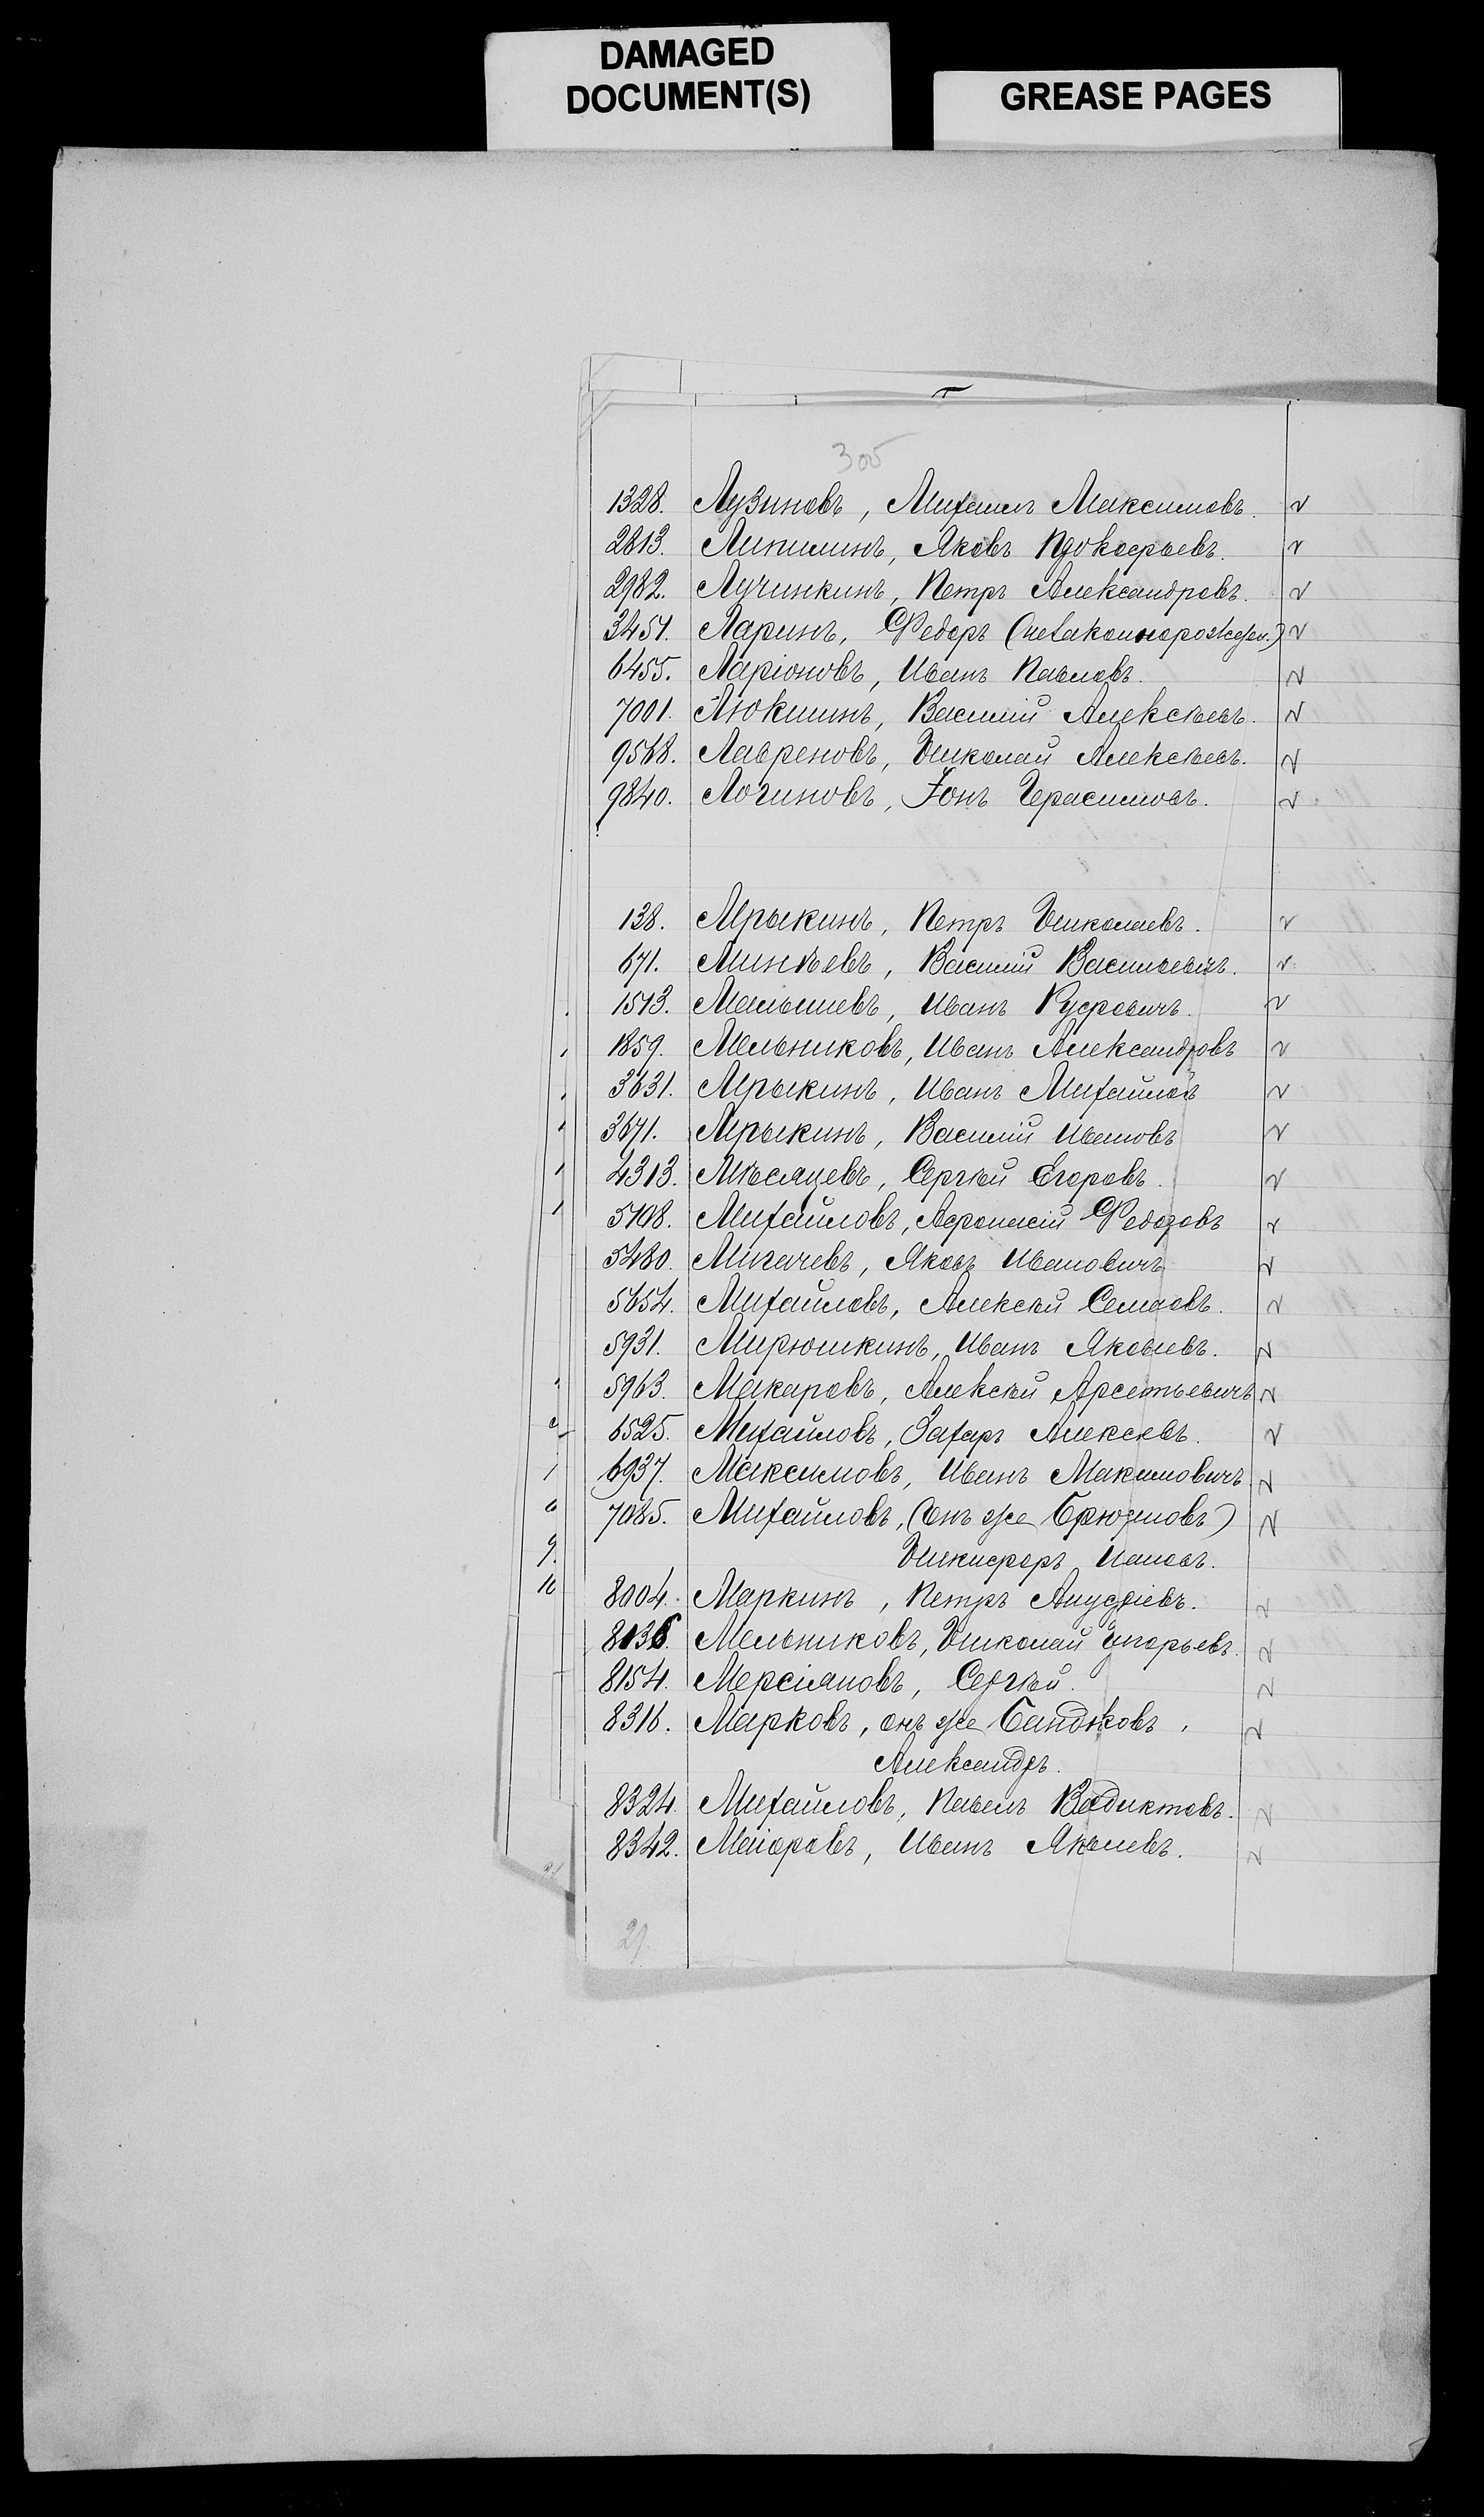 DAMAGED
DOCUMENT(S)
GREASE PAGES
305
1328. Лузиновъ, Михаилъ Максимовъ.
2813. Липилинъ, Яковъ
2982. Лучинкинъ, Петръ Александровъ.
3451. Ларинъ, Федоръ
6455. Ларіоновъ, Иванъ Павловъ.
7001. Люкшинъ, Василій Алексѣевъ.
9568. Лавреновъ, Николай Алексѣевъ.
9840. Логиновъ, Іонъ Герасимовъ.
138. Мрыкинъ, Петръ Николаевъ.
671. Минѣевъ, Василій Васильевичъ.
1573. Малышевъ, Иванъ
1859. Мельниковъ, Иванъ Александровъ
3631. Мрыкинъ, Иванъ Михайловъ
3671. Мрыкинъ, Василій Ивановъ
4313. Мѣсяцевъ, Сергѣй Егоровъ.
5708. Михайловъ, Афонасій
5480. Мигачевъ, Яковъ Ивановичъ
5654. Михайловъ, Алексѣй
5931. Мирюшкинъ, Иванъ Яковлевъ.
5963. Макаровъ, Алексѣй Арсентьевичъ
6525. Михайловъ, Захаръ Алексевъ.
6937. Максимовъ, Иванъ Макимовичъ
7085. Михайловъ, (онъ же
Никифоръ
8004. Маркинъ, Петръ
Мельниковъ, Николай
8154. Мерсіяновъ, Сергѣй.
8316. Марковъ, онъ же
Александръ.
8324. Михайловъ, Павелъ
8342. Маіоровъ, Иванъ Яковлевъ.
29.